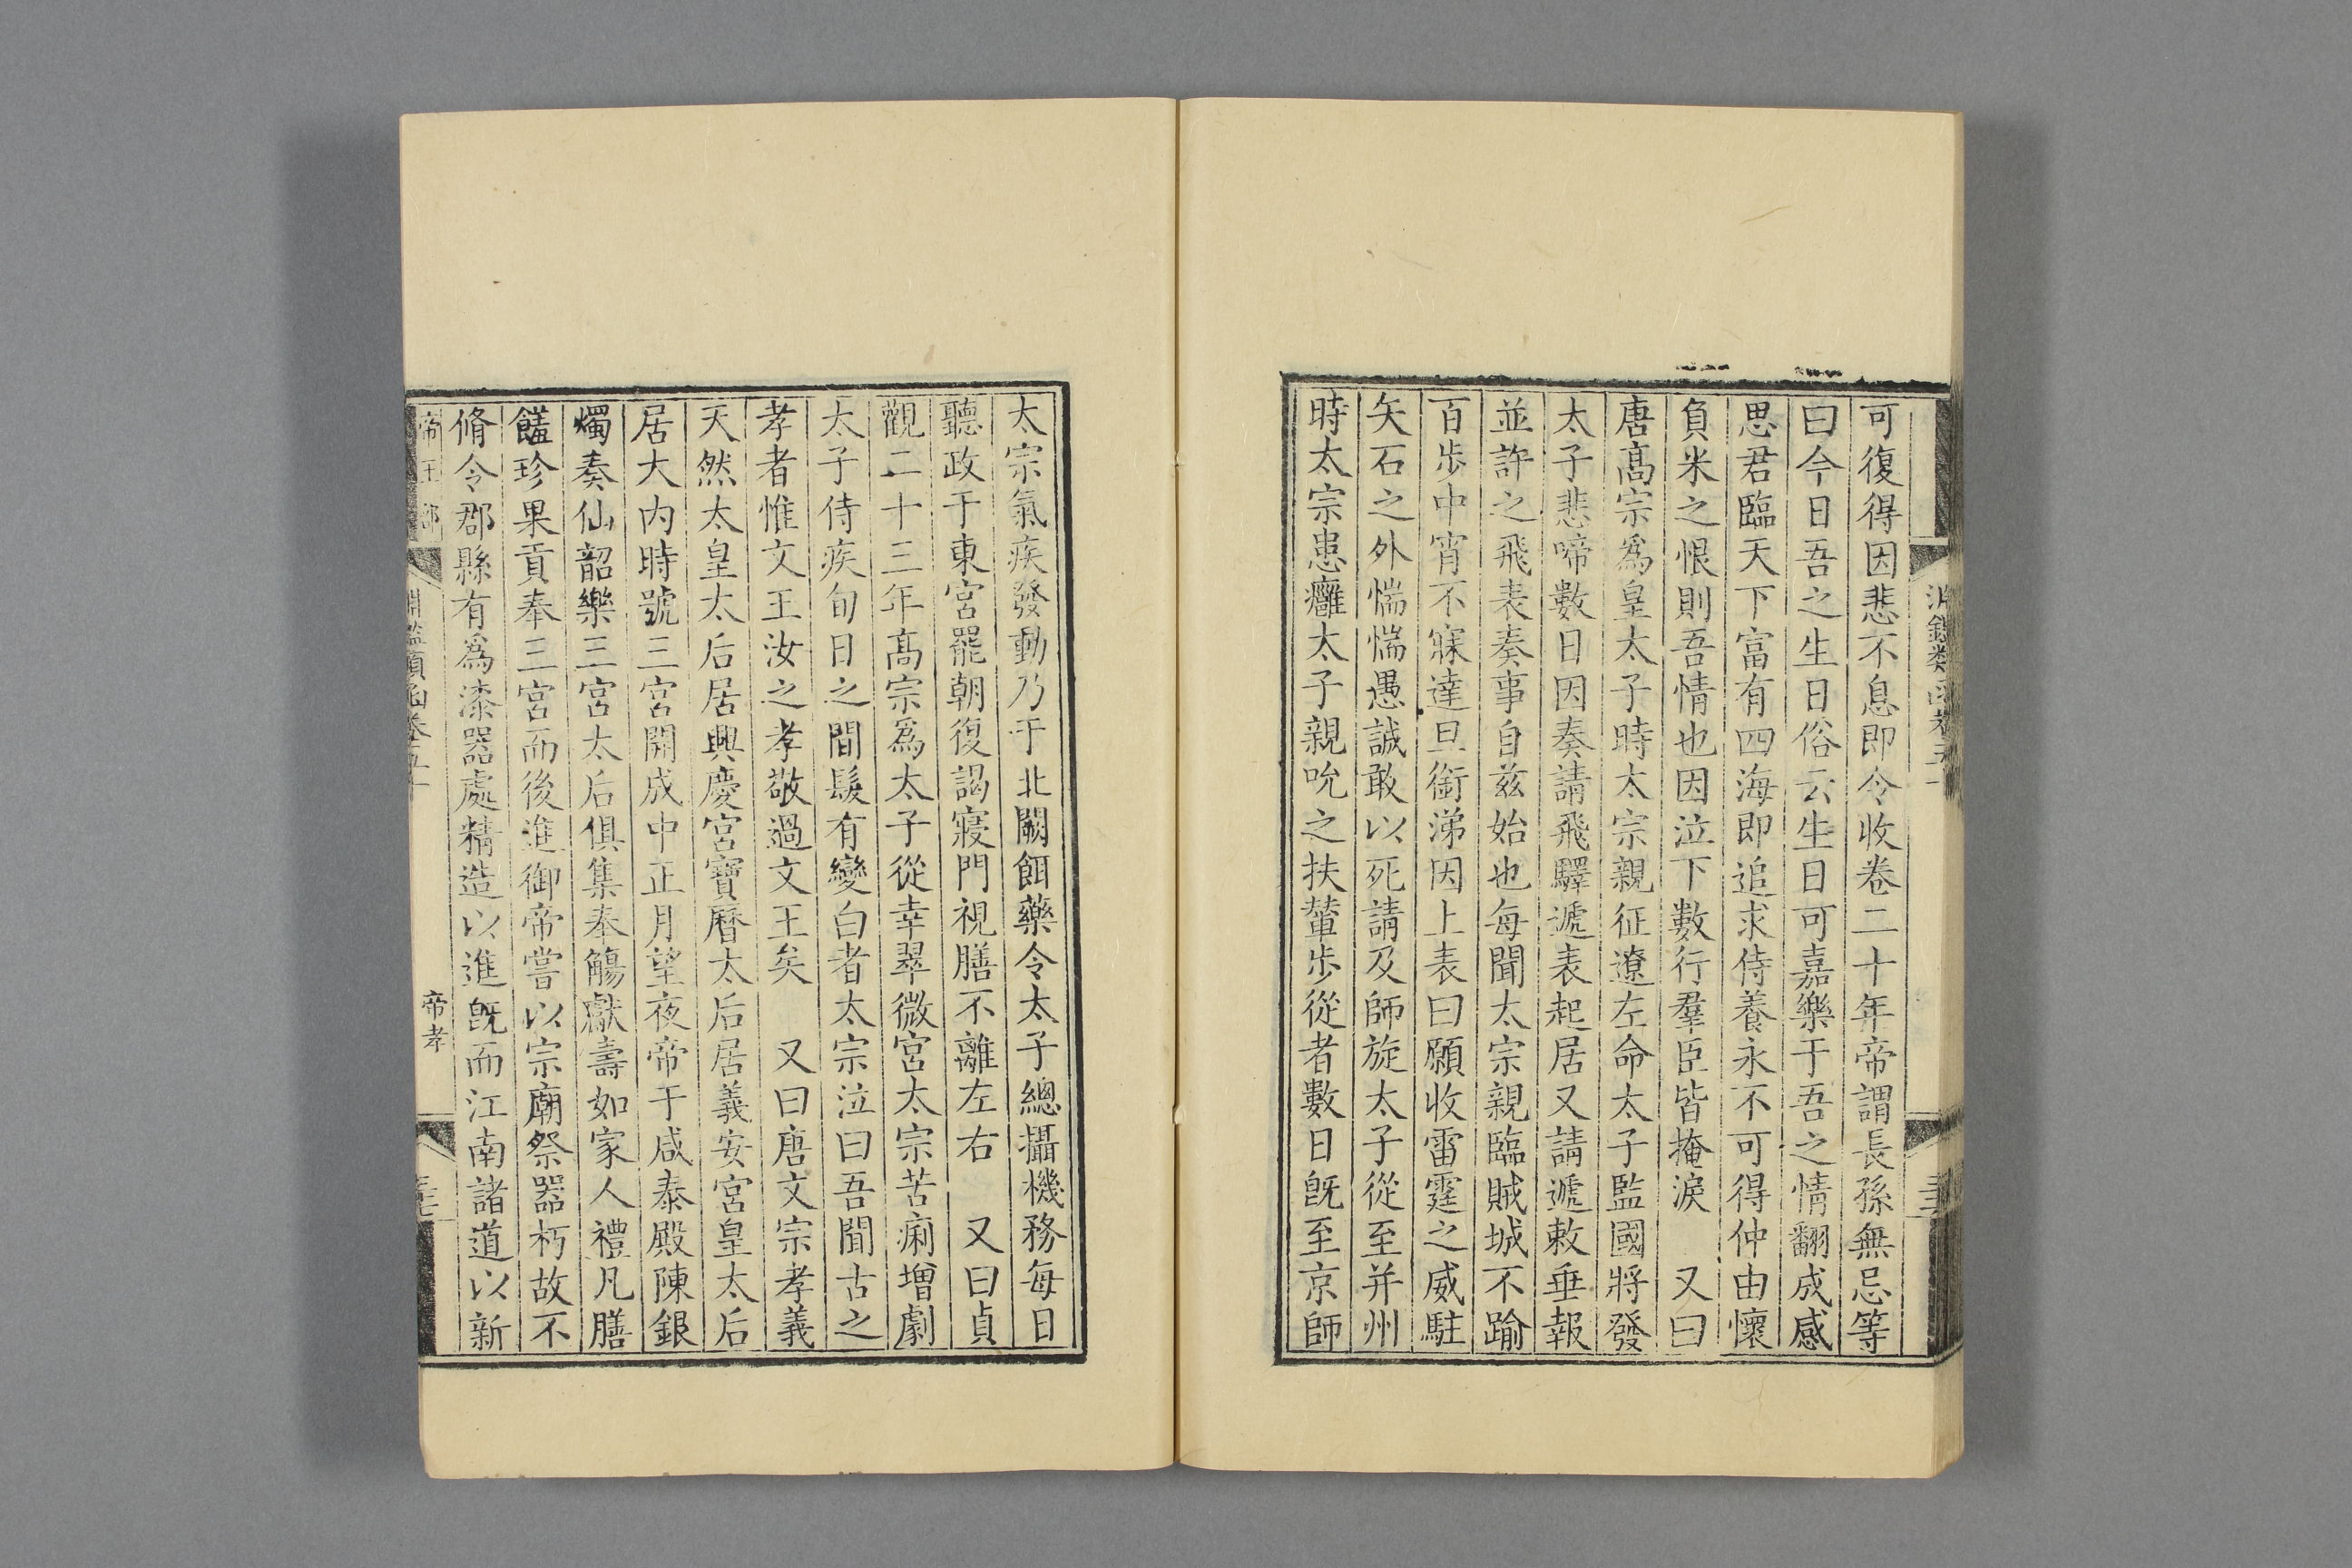 可復得因悲不息即令收卷二十年帝謂長孫無忌等
曰今日吾之生日俗云生日可嘉樂于吾之情翻成感
思君臨天下富有四海即追求侍養永不可得仲由懷
負米之恨則吾情也因泣下數行羣臣皆掩淚　又曰
唐髙宗爲皇太子時太宗親征遼左命太子監國將發
太子悲啼數日因奏請飛驛遞表起居又請遞敕垂報
並許之飛表奏事自兹始也每聞太宗親臨賊城不踰
百歩中宵不寐達旦銜涕因上表曰願收雷霆之威駐
矢石之外惴惴愚誠敢以死請及師旋太子從至并州
時太宗患癰太子親吮之扶輦歩從者數日旣至京師
太宗氣疾發動乃于北闕餌藥令太子總攝機務每日
聽政于東宮罷朝復謁寢門視膳不離左右　又曰貞
觀二十三年髙宗爲太子從幸翠微宮太宗苦痢增劇
太子侍疾旬日之間髮有變白者太宗泣曰吾聞古之
孝者惟文王汝之孝敬過文王矣　又曰唐文宗孝義
天然太皇太后居興慶宮寶曆太后居義安宮皇太后
居大内時號三宮開成中正月望夜帝于咸泰殿陳銀
燭奏仙韶樂三宮太后俱集奉觴獻壽如家人禮凡膳
饈珍果貢奉三宮而後進御帝嘗以宗廟祭器朽故不
脩令郡縣有爲漆器處精造以進旣而江南諸道以新
帝王部
帝孝